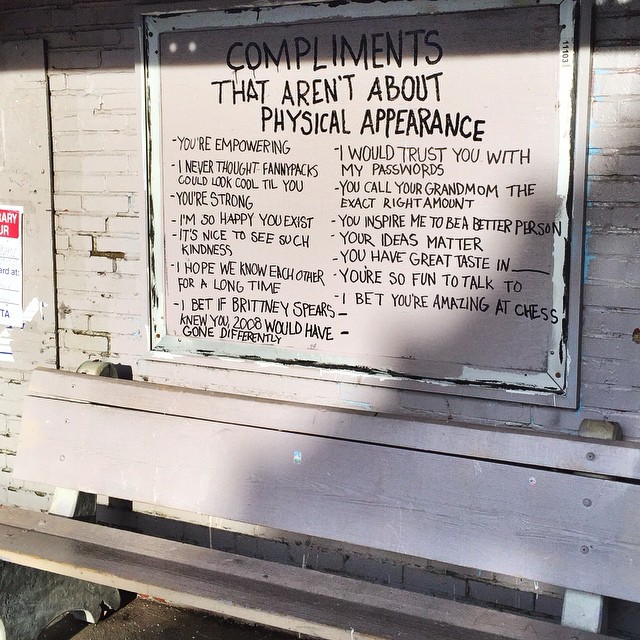 COMPLIMENTS
THAT AREN'T ABOUT
PHYSICAL APPEARANCE
-YOU'RE EMPOWERING
-I NEVER THOUGHT FANNYPACKS
COULD LOOK COOL TIL YOU
-YOU'RE STRONG
-I'M SO HAPPY YOU EXIST
-IT'S NICE TO SEE SUCH
KINDNESS
-I HOPE WE KNOW EACH OTHER
FOR A LONG TIME
-I BET IF BRITTNEY SPEARS
KNEW YOU, 2008 WOULD HAVE
GONE DIFFERENTLY
-I WOULD TRUST YOU WITH
MY PASSWORDS
-YOU CALL YOUR GRANDMOM THE
EXACT RIGHT AMOUNT
-YOU INSPIRE ME TO BE A BETTER PERSON
-YOUR IDEAS MATTER
-YOU HAVE GREAT TASTE IN ____
-YOU'RE SO FUN TO TALK TO
-I BET YOU'RE AMAZING AT CHESS
-
-
11103
RARY
UR
ard at:
TA